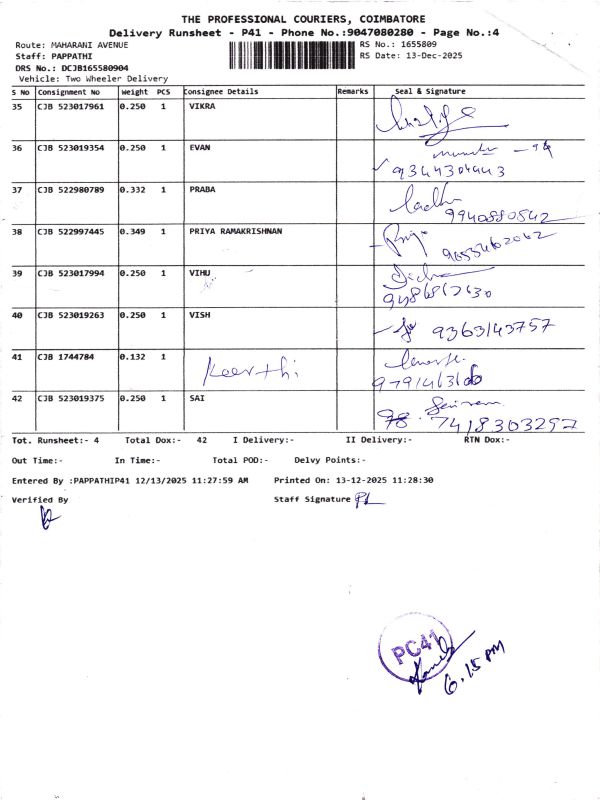 THE PROFESSIONAL COURIERS, COIMBATORE
Delivery Runsheet - P41 - Phone No.:9047080280 - Page No.:4
Route: MAHARANI AVENUE RS No.: 1655809
Staff: PAPPATHI RS Date: 13-Dec-2025
DRS No.: DCJB165580904
Vehicle: Two Wheeler Delivery
S No Consignment No Weight PCS Consignee Details Remarks Seal & Signature
35 CJB 523017961 0.250 1 VIKRA
36 CJB 523019354 0.250 1 EVAN
37 CJB 522980789 0.332 1 PRABA
9940880542
38 CJB 522997445 0.349 1 PRIYA RAMAKRISHNAN Priya
39 CJB 523017994 0.250 1 VIHU
40 CJB 523019263 0.250 1 VISH 9363143757
41 CJB 1744784 0.132 1 Keerthi
42 CJB 523019375 0.250 1 SAI Sairam
7418303297
Tot. Runsheet:- 4 Total Dox:- 42 I Delivery:- II Delivery:- RTN Dox:-
Out Time:- In Time:- Total POD:- Delvy Points:-
Entered By :PAPPATHIP41 12/13/2025 11:27:59 AM Printed On: 13-12-2025 11:28:30
Verified By Staff Signature
PC41
6.15 PM